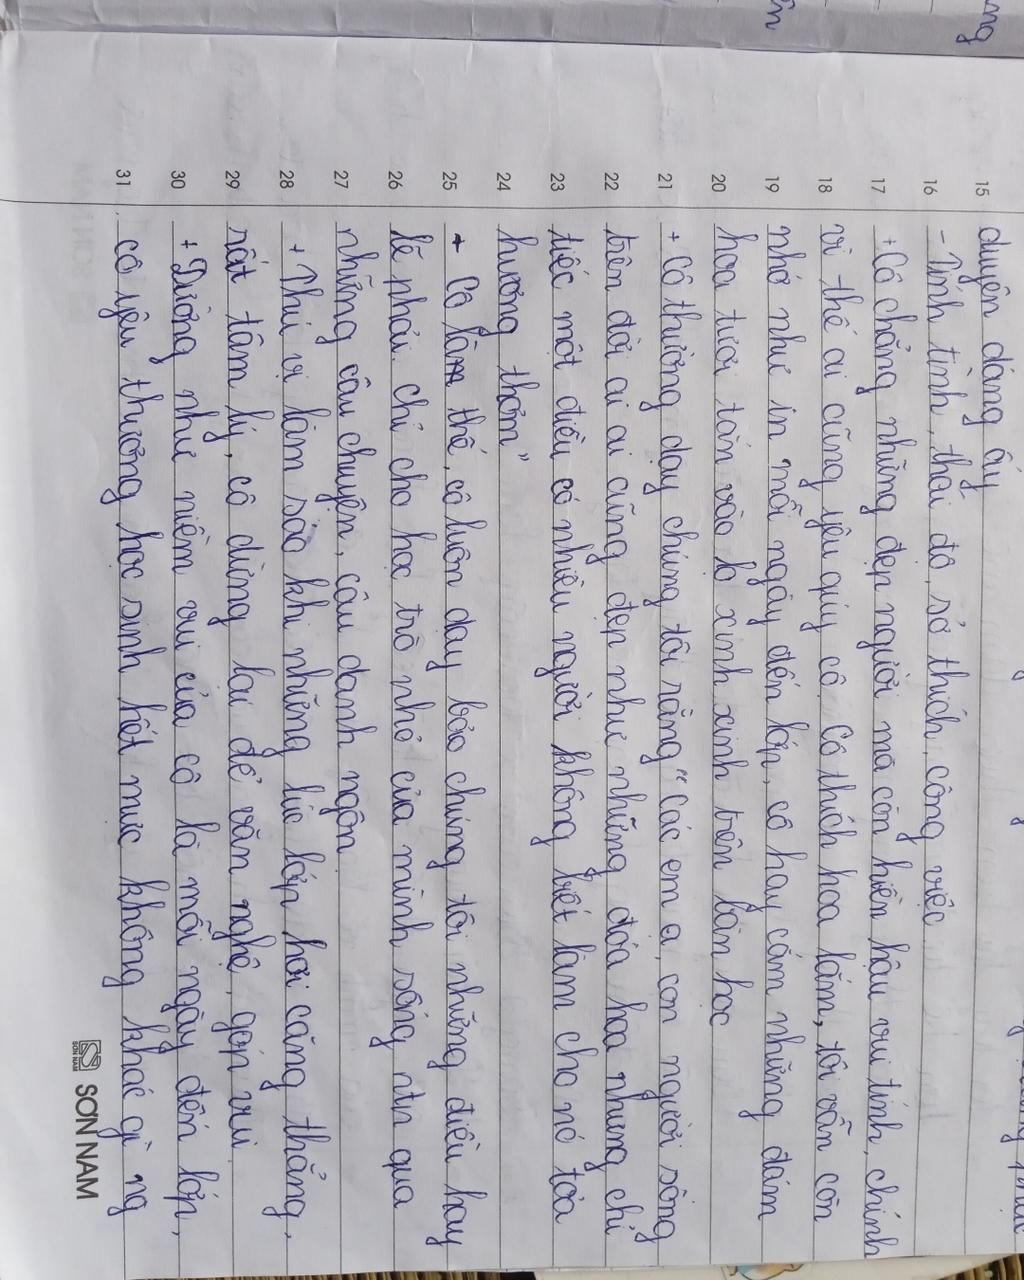 15 duyên dáng ấy
16 - Tính tình, thái độ, sở thích, công việc
17 + Cô chẳng những đẹp người mà còn hiền hậu vui tính, chính
18 vì thế ai cũng yêu quý cô. Cô thích hoa lắm, tôi vẫn còn
19 nhớ như in mỗi ngày đến lớp, cô hay cắm những đám
20 hoa tươi tắn vào lọ xinh xinh trên bàn học
21 + Cô thường dạy chúng tôi rằng "Các em ạ, con người sống
22 trên đời ai ai cũng đẹp như những đóa hoa nhưng chỉ
23 tiếc một điều có nhiều người không biết làm cho nó tỏa
24 hương thơm"
25 + Cô lắm thế, cô luôn dạy bảo chúng tôi những điều hay
26 lẽ phải chỉ cho học trò nhỏ của mình sống ntn qua
27 những câu chuyện, câu danh ngôn
28 + Thú vị làm sao khi những lúc lớp hơi căng thẳng,
29 rất tâm lý, cô dừng lại để văn nghệ, góp vui
30 + Dường như niềm vui của cô là mỗi ngày đến lớp,
31 cô yêu thương học sinh hết mực không khác gì ng
SƠN NAM